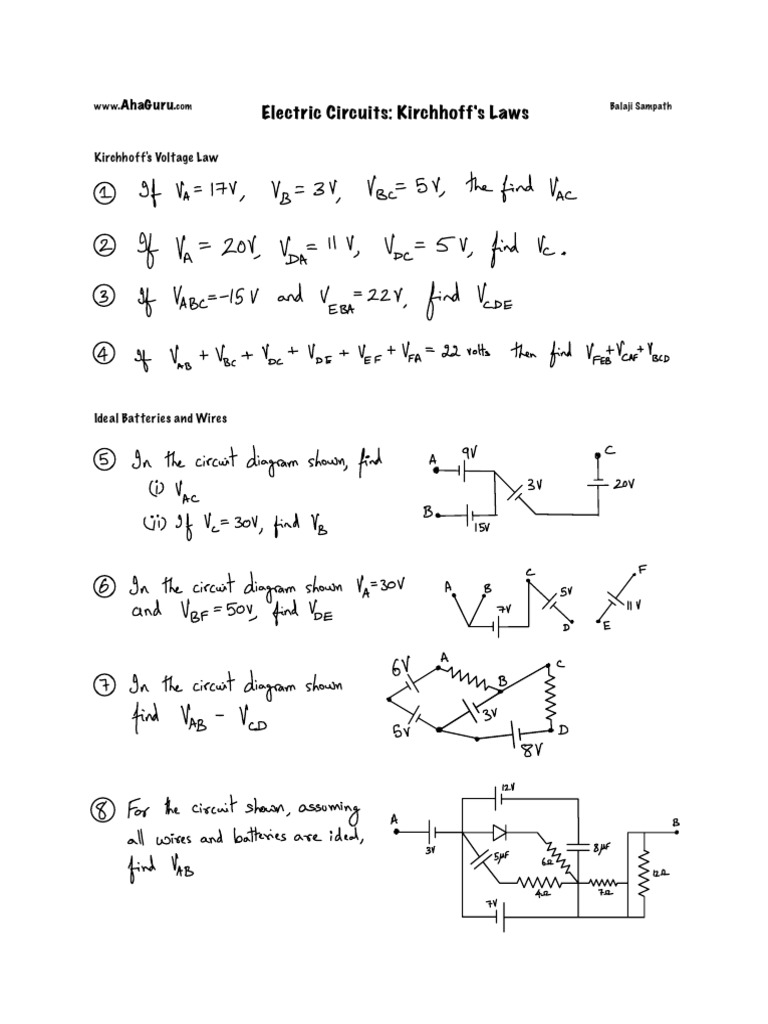 www.AhaGuru.com
Electric Circuits: Kirchhoff's Laws
Balaji Sampath
Kirchhoff's Voltage Law
① If V_A = 17V, V_B = 3V, V_BC = 5V, the find V_AC
② If V_A = 20V, V_DA = 11V, V_DC = 5V, find V_C.
③ If V_ABC = -15V and V_EBA = 22V, find V_CDE
④ If V_AB + V_BC + V_DC + V_DE + V_EF + V_FA = 22 volts then find V_FEB + V_CAF + V_BCD
Ideal Batteries and Wires
⑤ In the circuit diagram shown, find
(i) V_AC
(ii) If V_C = 30V, find V_B
A 9V C
3V 20V
B 15V
⑥ In the circuit diagram shown V_A = 30V
and V_BF = 50V, find V_DE
A B C 5V F
7V D E 11V
⑦ In the circuit diagram shown
find V_AB - V_CD
6V A B C
5V 3V D
8V
⑧ For the circuit shown, assuming
all wires and batteries are ideal,
find V_AB
12V
A B
3V 5μF 6Ω 8μF 12Ω
4Ω 7Ω
7V